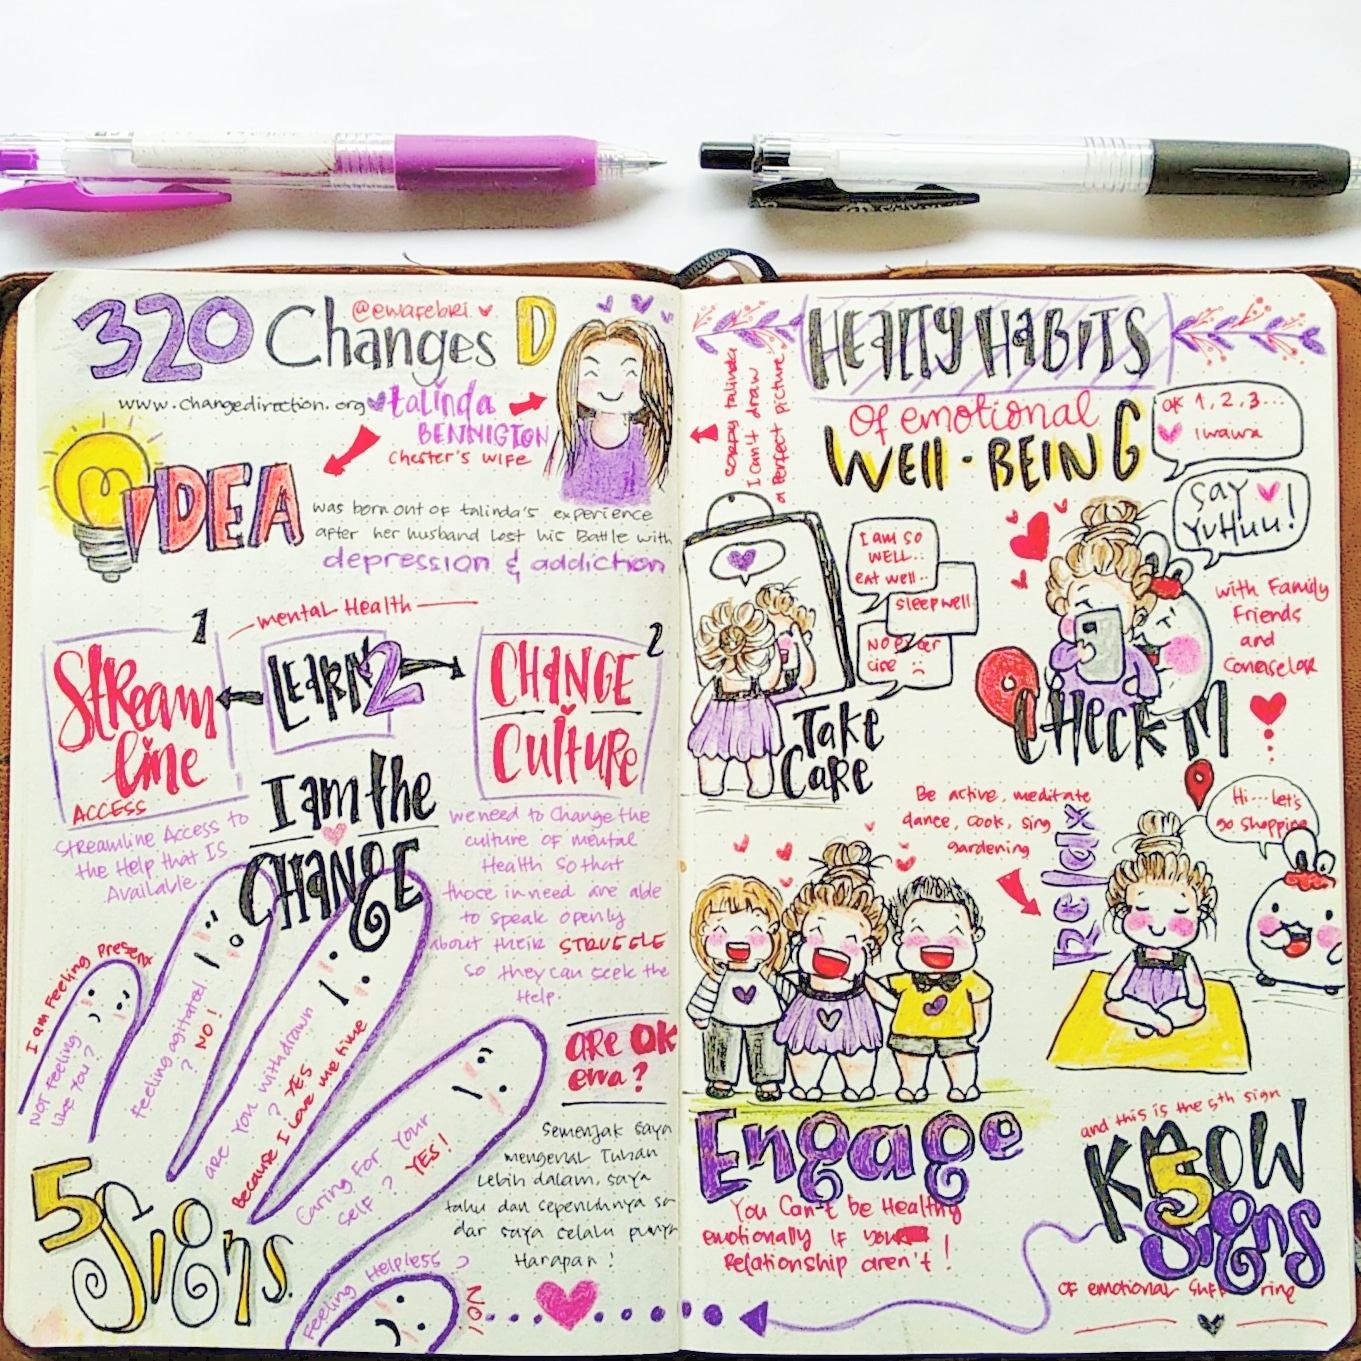 320 Changes D
@ewafebri
www.changedirection.org
talinda
BENNIGTON
Chester's wife
IDEA
was born out of talinda's experience
after her husband Lost his Battle with
depression & addiction
mental Health
1
Stream
line
ACCESS
Streamline Access to
the Help that Is
Available
LEARN 2
2
CHANGE
Culture
we need to Change the
culture of mental
Health so that
those in need are able
to speak openly
about their STRUGGLE
so they can seek the
Help.
I am the
CHANGE
I am Feeling Present
Not Feeling
Like You?
Feeling agitated
? NO!
are You withdrawn
? YES
Because I Love me time
Caring For Your
self? YES!
Feeling Helpless ?
NO!
5 Signs.
are OK
ewa?
Semenjak saya
mengenal Tuhan
Lebih dalam, saya
tahu dan sepenuhnya sa
dar saya selalu punya
Harapan!
sorry talinda
I can't draw
a Perfect picture
HEALTY HABITS
Of emotional
WELL-BEING
OK 1, 2, 3...
iwawa
Say
YuHuu!
I am so
WELL..
eat well..
sleep well
Take
Care
with Family
Friends
and
Conselor
CHECK IN
Be active, meditate
dance, cook, sing
gardening
Relax
Hi...let's
go shopping
Engage
You Can't be Healthy
emotionally IF your
Relationship aren't!
and this is the 5th sign
KNOW
5
Signs
OF emotional suffering